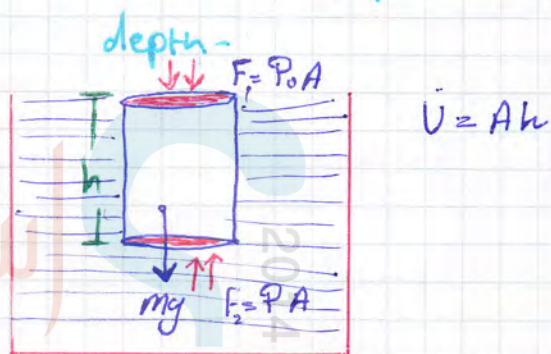 depth-
F₁=P₀A
U = Ah
h
mg
F₂=PA
2014